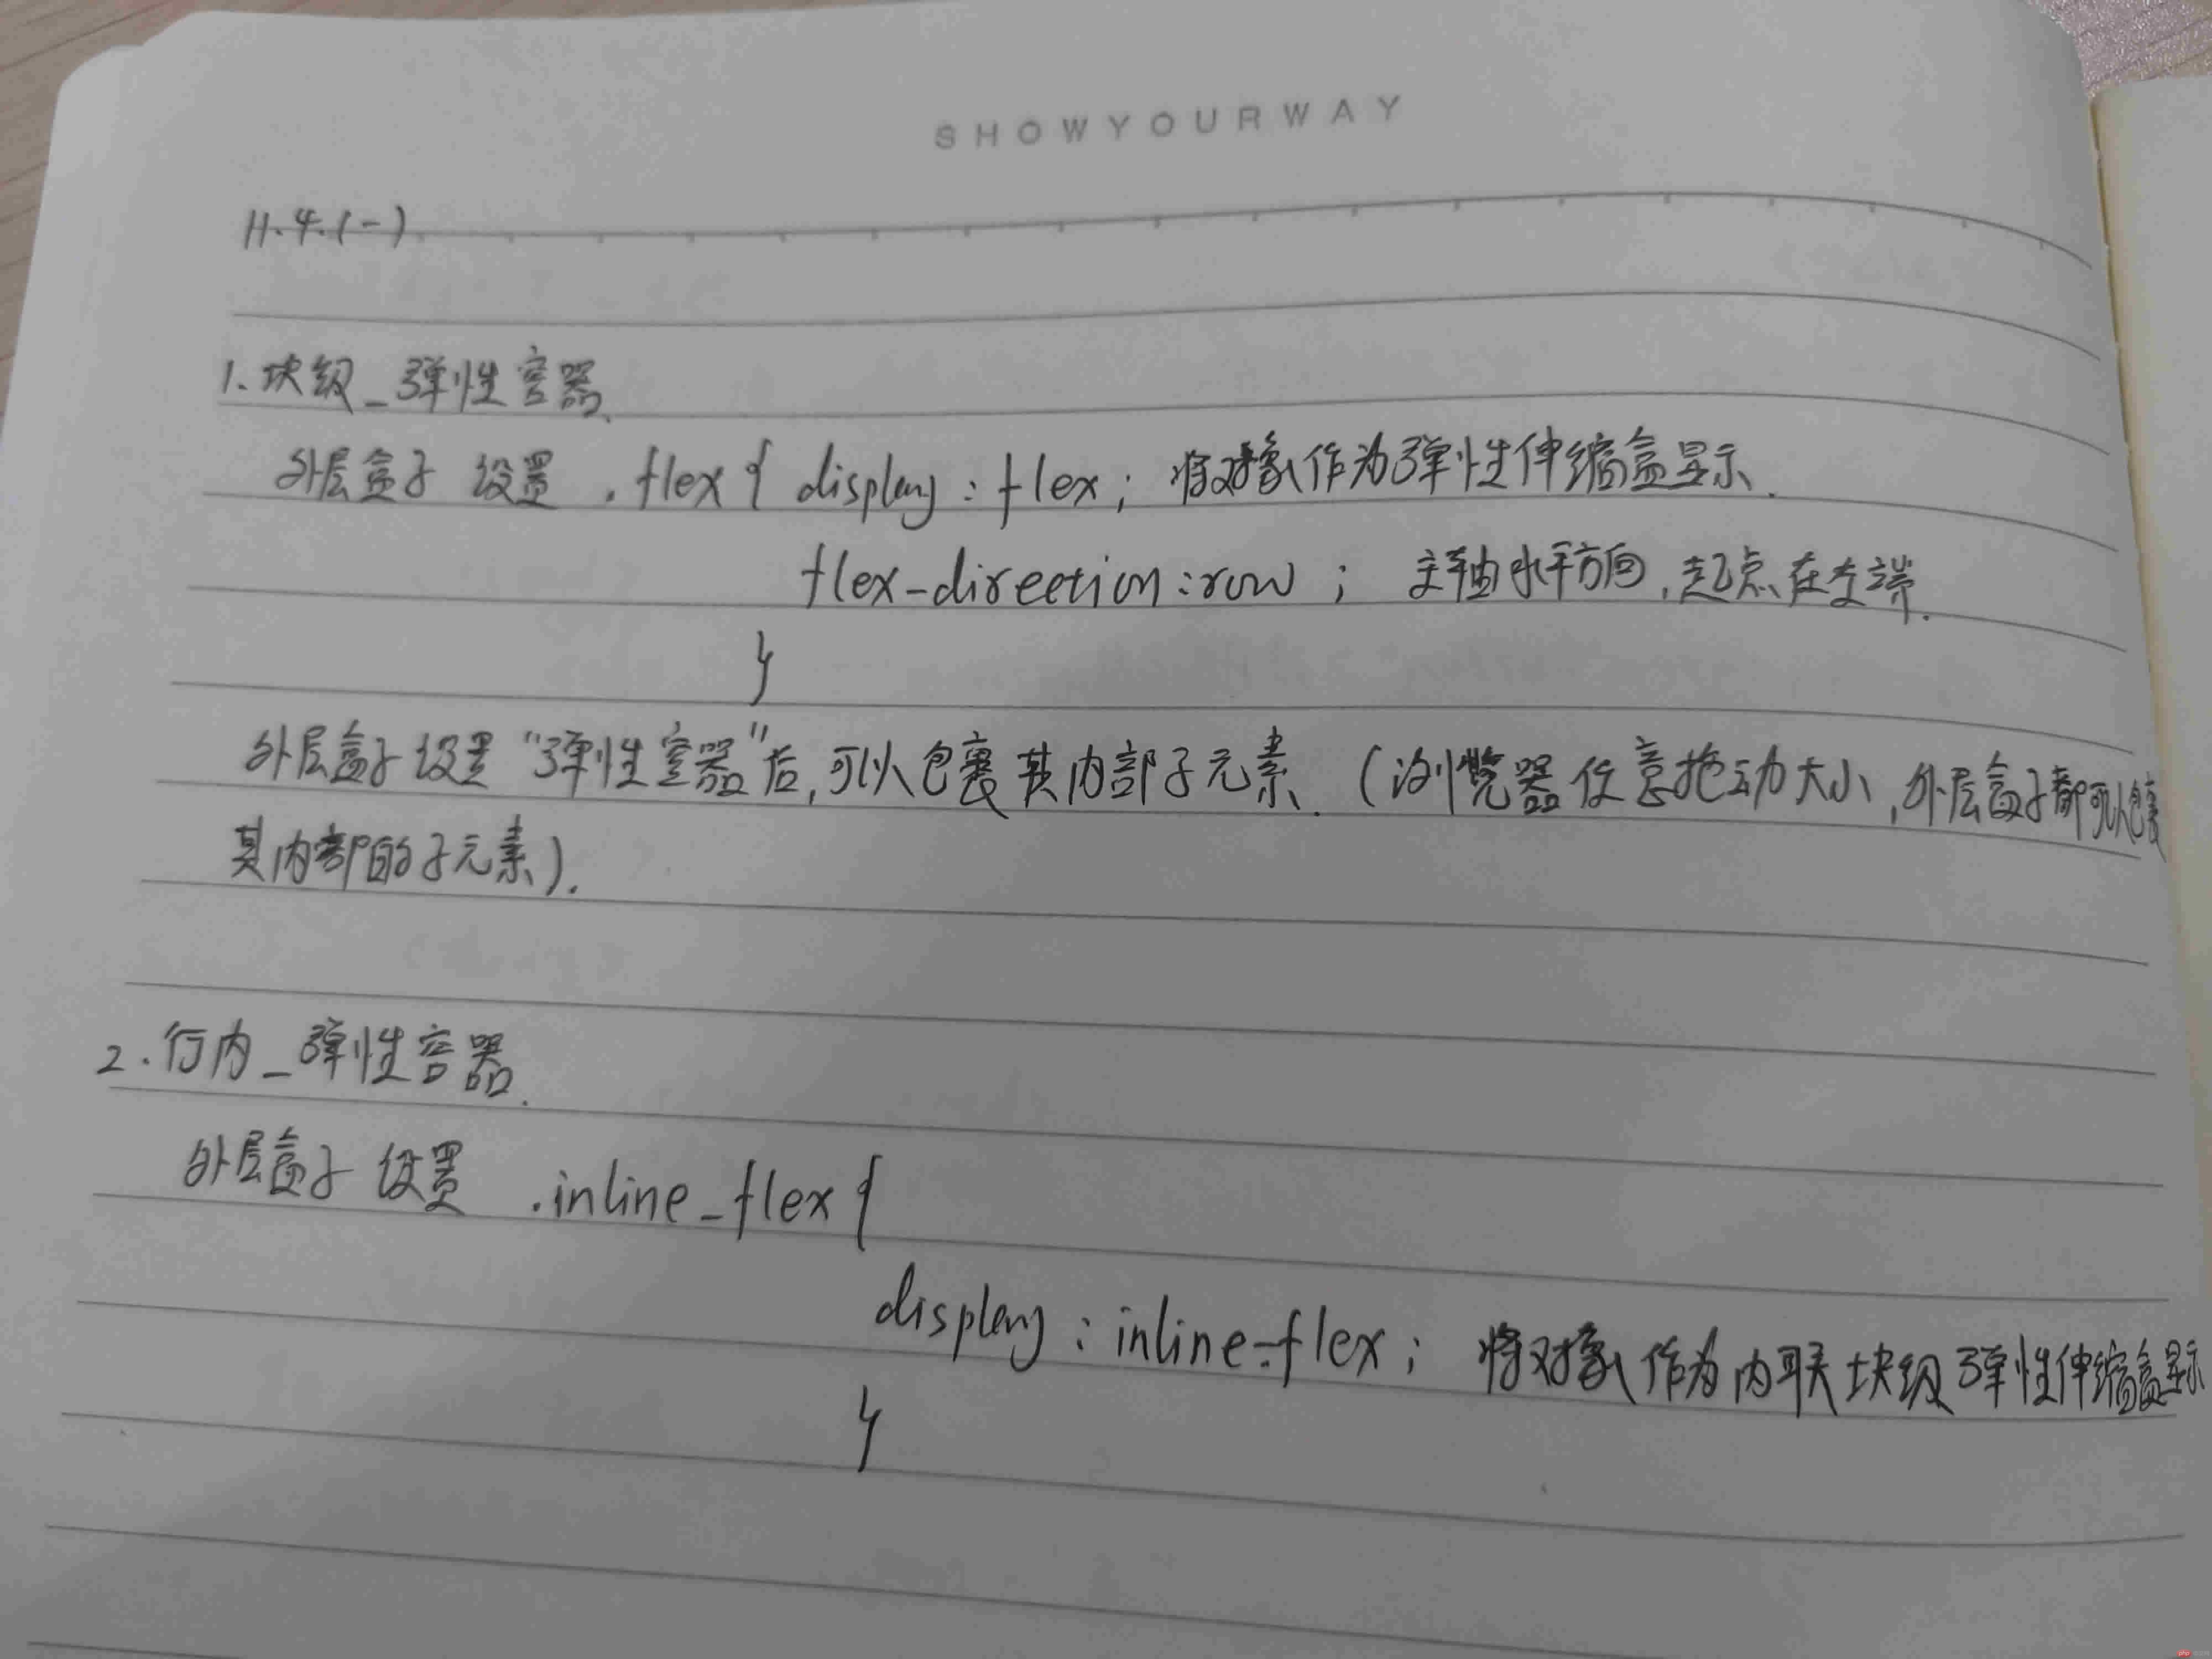 SHOWYOURWAY
11.4.(一)
1.块级_弹性容器.
外层盒子 设置 .flex{ display:flex; 将对象作为弹性伸缩盒显示.
flex-direction:row; 主轴水平方向,起点在左端.
}
外层盒子设置"弹性容器"后,可以包裹其内部子元素.(浏览器任意拖动大小,外层盒子都可以包裹
其内部的子元素).
2.行内_弹性容器.
外层盒子 设置 .inline_flex{
display:inline-flex; 将对象作为内联块级弹性伸缩盒显示
}